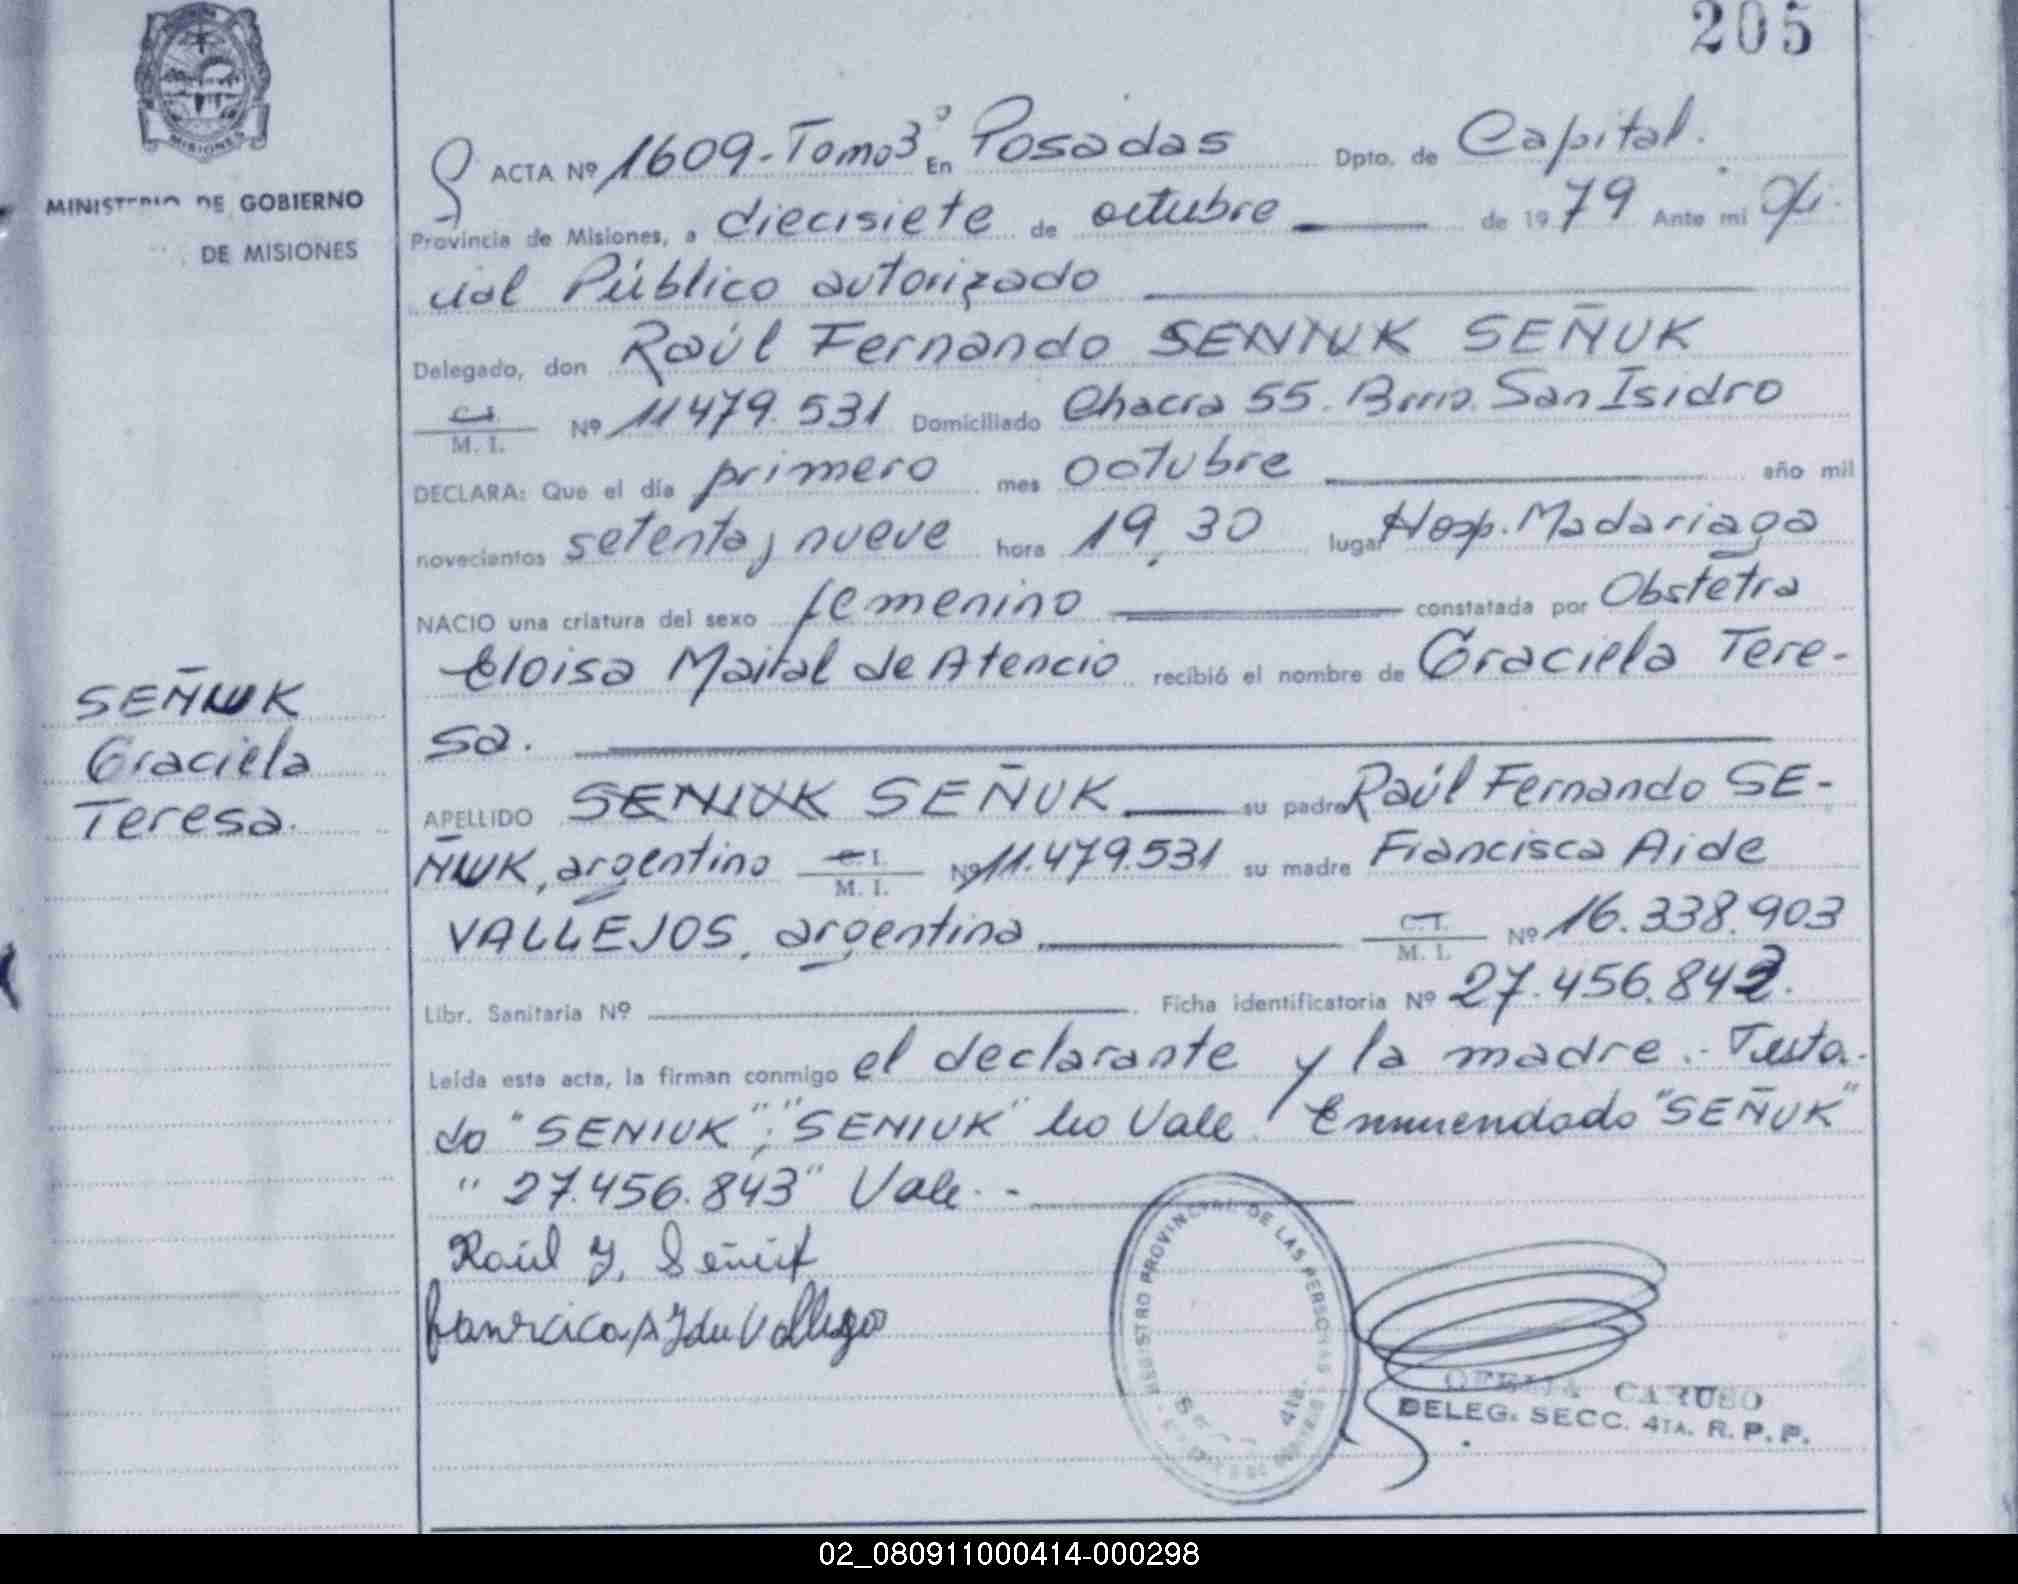 205
MISIONES
MINISTERIO DE GOBIERNO
DE MISIONES
ACTA Nº 1609-Tomo 3º En Posadas Dpto. de Capital.
Provincia de Misiones, a diecisiete de octubre de 1979 Ante mi Ofi-
cial Público autorizado
Delegado, don Raúl Fernando SENIUK SEÑUK
C.I. M. I. Nº 11479.531 Domiciliado Chacra 55. Brrio. San Isidro
DECLARA: Que el día primero mes octubre año mil
novecientos setenta y nueve hora 19,30 lugar Hosp. Madariaga
NACIO una criatura del sexo femenino constatada por Obstetra
Eloisa Maital de Atencio recibió el nombre de Graciela Tere-
sa.
SEÑUK
Graciela
Teresa.
APELLIDO SENIUK SEÑUK su padre Raúl Fernando SE-
ÑUK, argentino C.I. M. I. Nº 11.479.531 su madre Francisca Aide
VALLEJOS, argentina C.I. M. I. Nº 16.338.903
Libr. Sanitaria Nº Ficha identificatoria Nº 27.456.843.
Leída esta acta, la firman conmigo el declarante y la madre.- Testa-
do "SENIUK"; "SENIUK" No Vale. Enmendado "SEÑUK"
"27.456.843" Vale.-
Raúl F. Señuk
REGISTRO PROVINCIAL DE LAS PERSONAS
4ta.
OFELIA CARUSO
DELEG. SECC. 4TA. R. P. P.
02_080911000414-000298